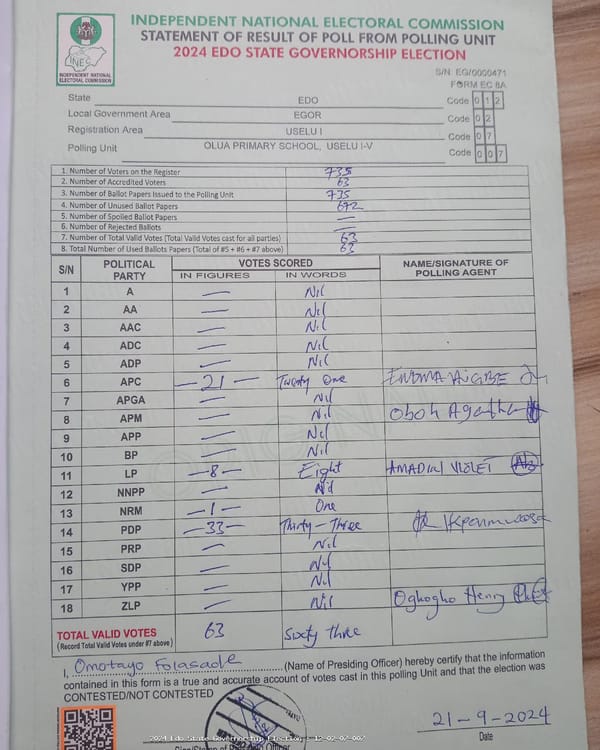 INDEPENDENT NATIONAL ELECTORAL COMMISSION
STATEMENT OF RESULT OF POLL FROM POLLING UNIT
2024 EDO STATE GOVERNORSHIP ELECTION
INEC
INDEPENDENT NATIONAL ELECTORAL COMMISSION
S/N: EG/0000471
FORM EC 8A
State EDO Code 0 1 2
Local Government Area EGOR Code 0 2
Registration Area USELU I Code 0 7
Polling Unit OLUA PRIMARY SCHOOL, USELU I-V Code 0 0 7
1. Number of Voters on the Register 735
2. Number of Accredited Voters 63
3. Number of Ballot Papers Issued to the Polling Unit 735
4. Number of Unused Ballot Papers 672
5. Number of Spoiled Ballot Papers —
6. Number of Rejected Ballots —
7. Number of Total Valid Votes (Total Valid Votes cast for all parties) 63
8. Total Number of Used Ballots Papers (Total of #5 + #6 + #7 above) 63
S/N POLITICAL PARTY VOTES SCORED NAME/SIGNATURE OF POLLING AGENT
IN FIGURES IN WORDS
1 A — Nil
2 AA — Nil
3 AAC — Nil
4 ADC — Nil
5 ADP — Nil
6 APC —21— Twenty One
7 APGA — Nil
8 APM — Nil Oboh Agatha
9 APP — Nil
10 BP — Nil
11 LP —8— Eight AMADIN VIOLET
12 NNPP — Nil
13 NRM —1— One
14 PDP —33— Thirty-Three
15 PRP — Nil
16 SDP — Nil
17 YPP — Nil
18 ZLP — Nil Oghogho Henry
TOTAL VALID VOTES 63 Sixty three
(Record Total Valid Votes under #7 above)
I, Omotayo Folasade (Name of Presiding Officer) hereby certify that the information
contained in this form is a true and accurate account of votes cast in this polling Unit and that the election was
CONTESTED/NOT CONTESTED
21-9-2024
Date
2024 Edo State Governorship Election - 12-02-07-007